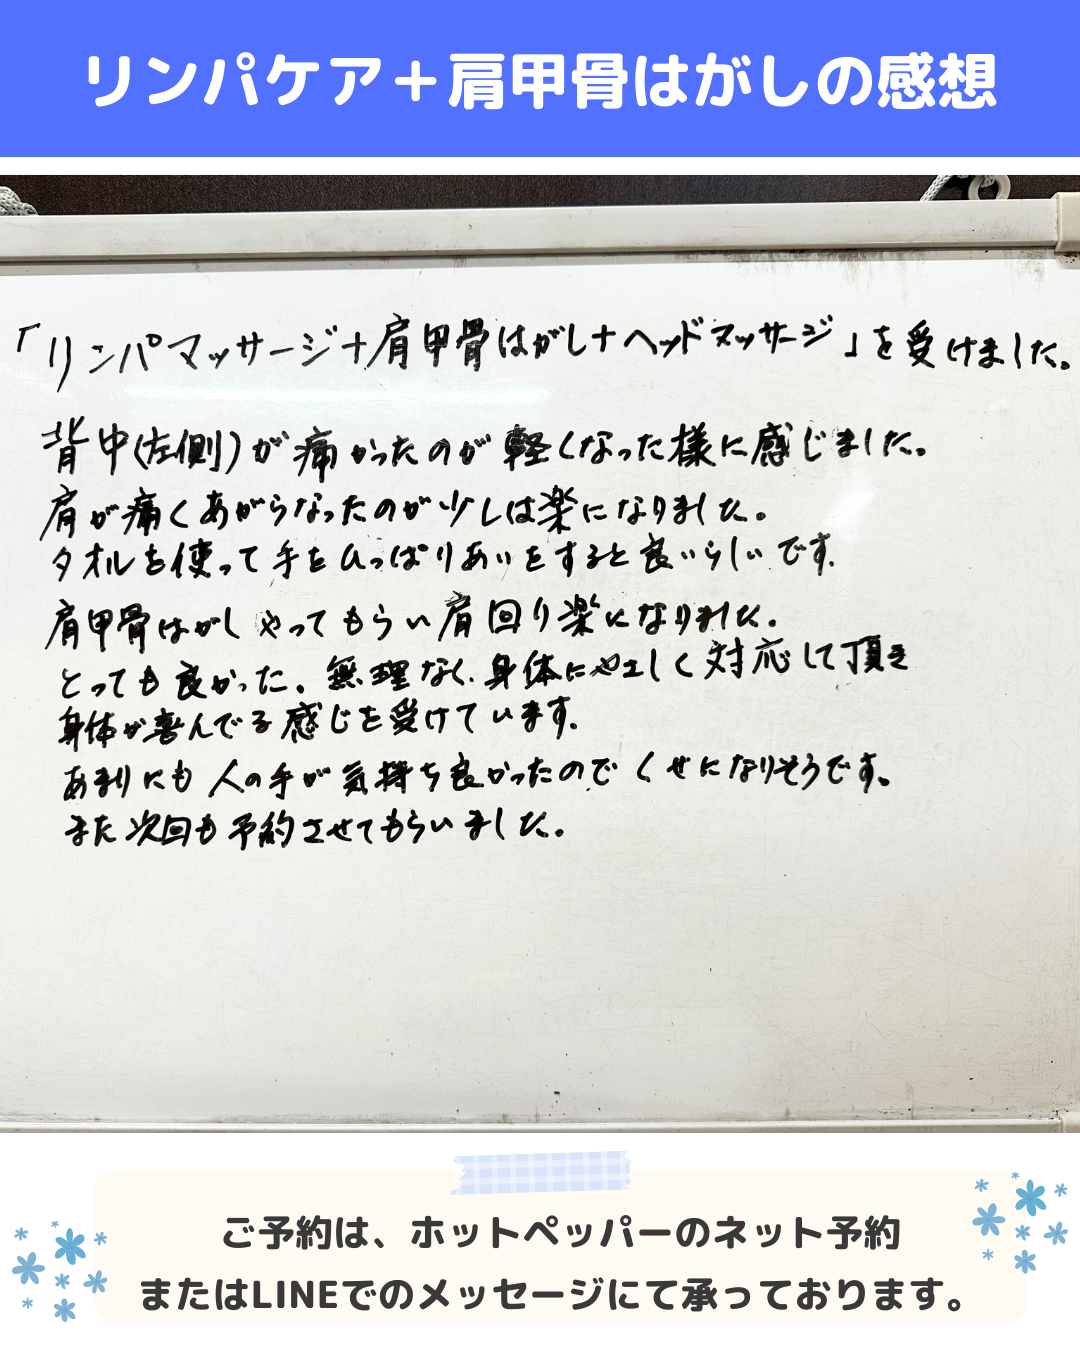 リンパケア＋肩甲骨はがしの感想
「リンパマッサージ＋肩甲骨はがし＋ヘッドマッサージ」を受けました。
背中(左側)が痛かったのが軽くなった様に感じました。
肩が痛くあがらなったのが少しは楽になりました。
タオルを使って手をひっぱりあいをすると良いらしいです。
肩甲骨はがしやってもらい肩回り楽になりました。
とっても良かった。無理なく、身体にやさしく対応して頂き
身体が喜んでる感じを受けています。
あまりにも人の手が気持ち良かったのでくせになりそうです。
また次回も予約させてもらいました。
ご予約は、ホットペッパーのネット予約
またはLINEでのメッセージにて承っております。